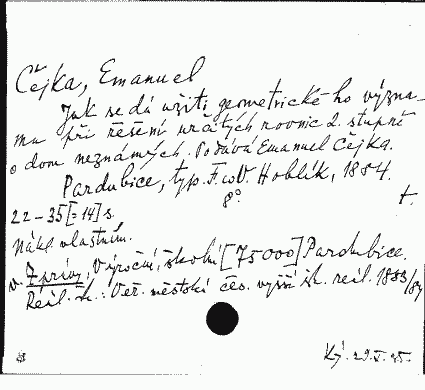 Čejka, Emanuel
Jak se dá užíti geometrického význa-
mu při řešení určitých rovnic 2. stupně
o dvou neznámých. Podává Emanuel Čejka.
Pardubice, typ. F. & V. Hoblík, 1884.
8° t.
22-35[=14] s.
Nákl. vlastním.
v. Zprávy, Výroční, školní [75000] Pardubice.
Reál. šk.: Veř. městská čes. vyšší šk. reál. 1883/84
Ký. 29.X.45.